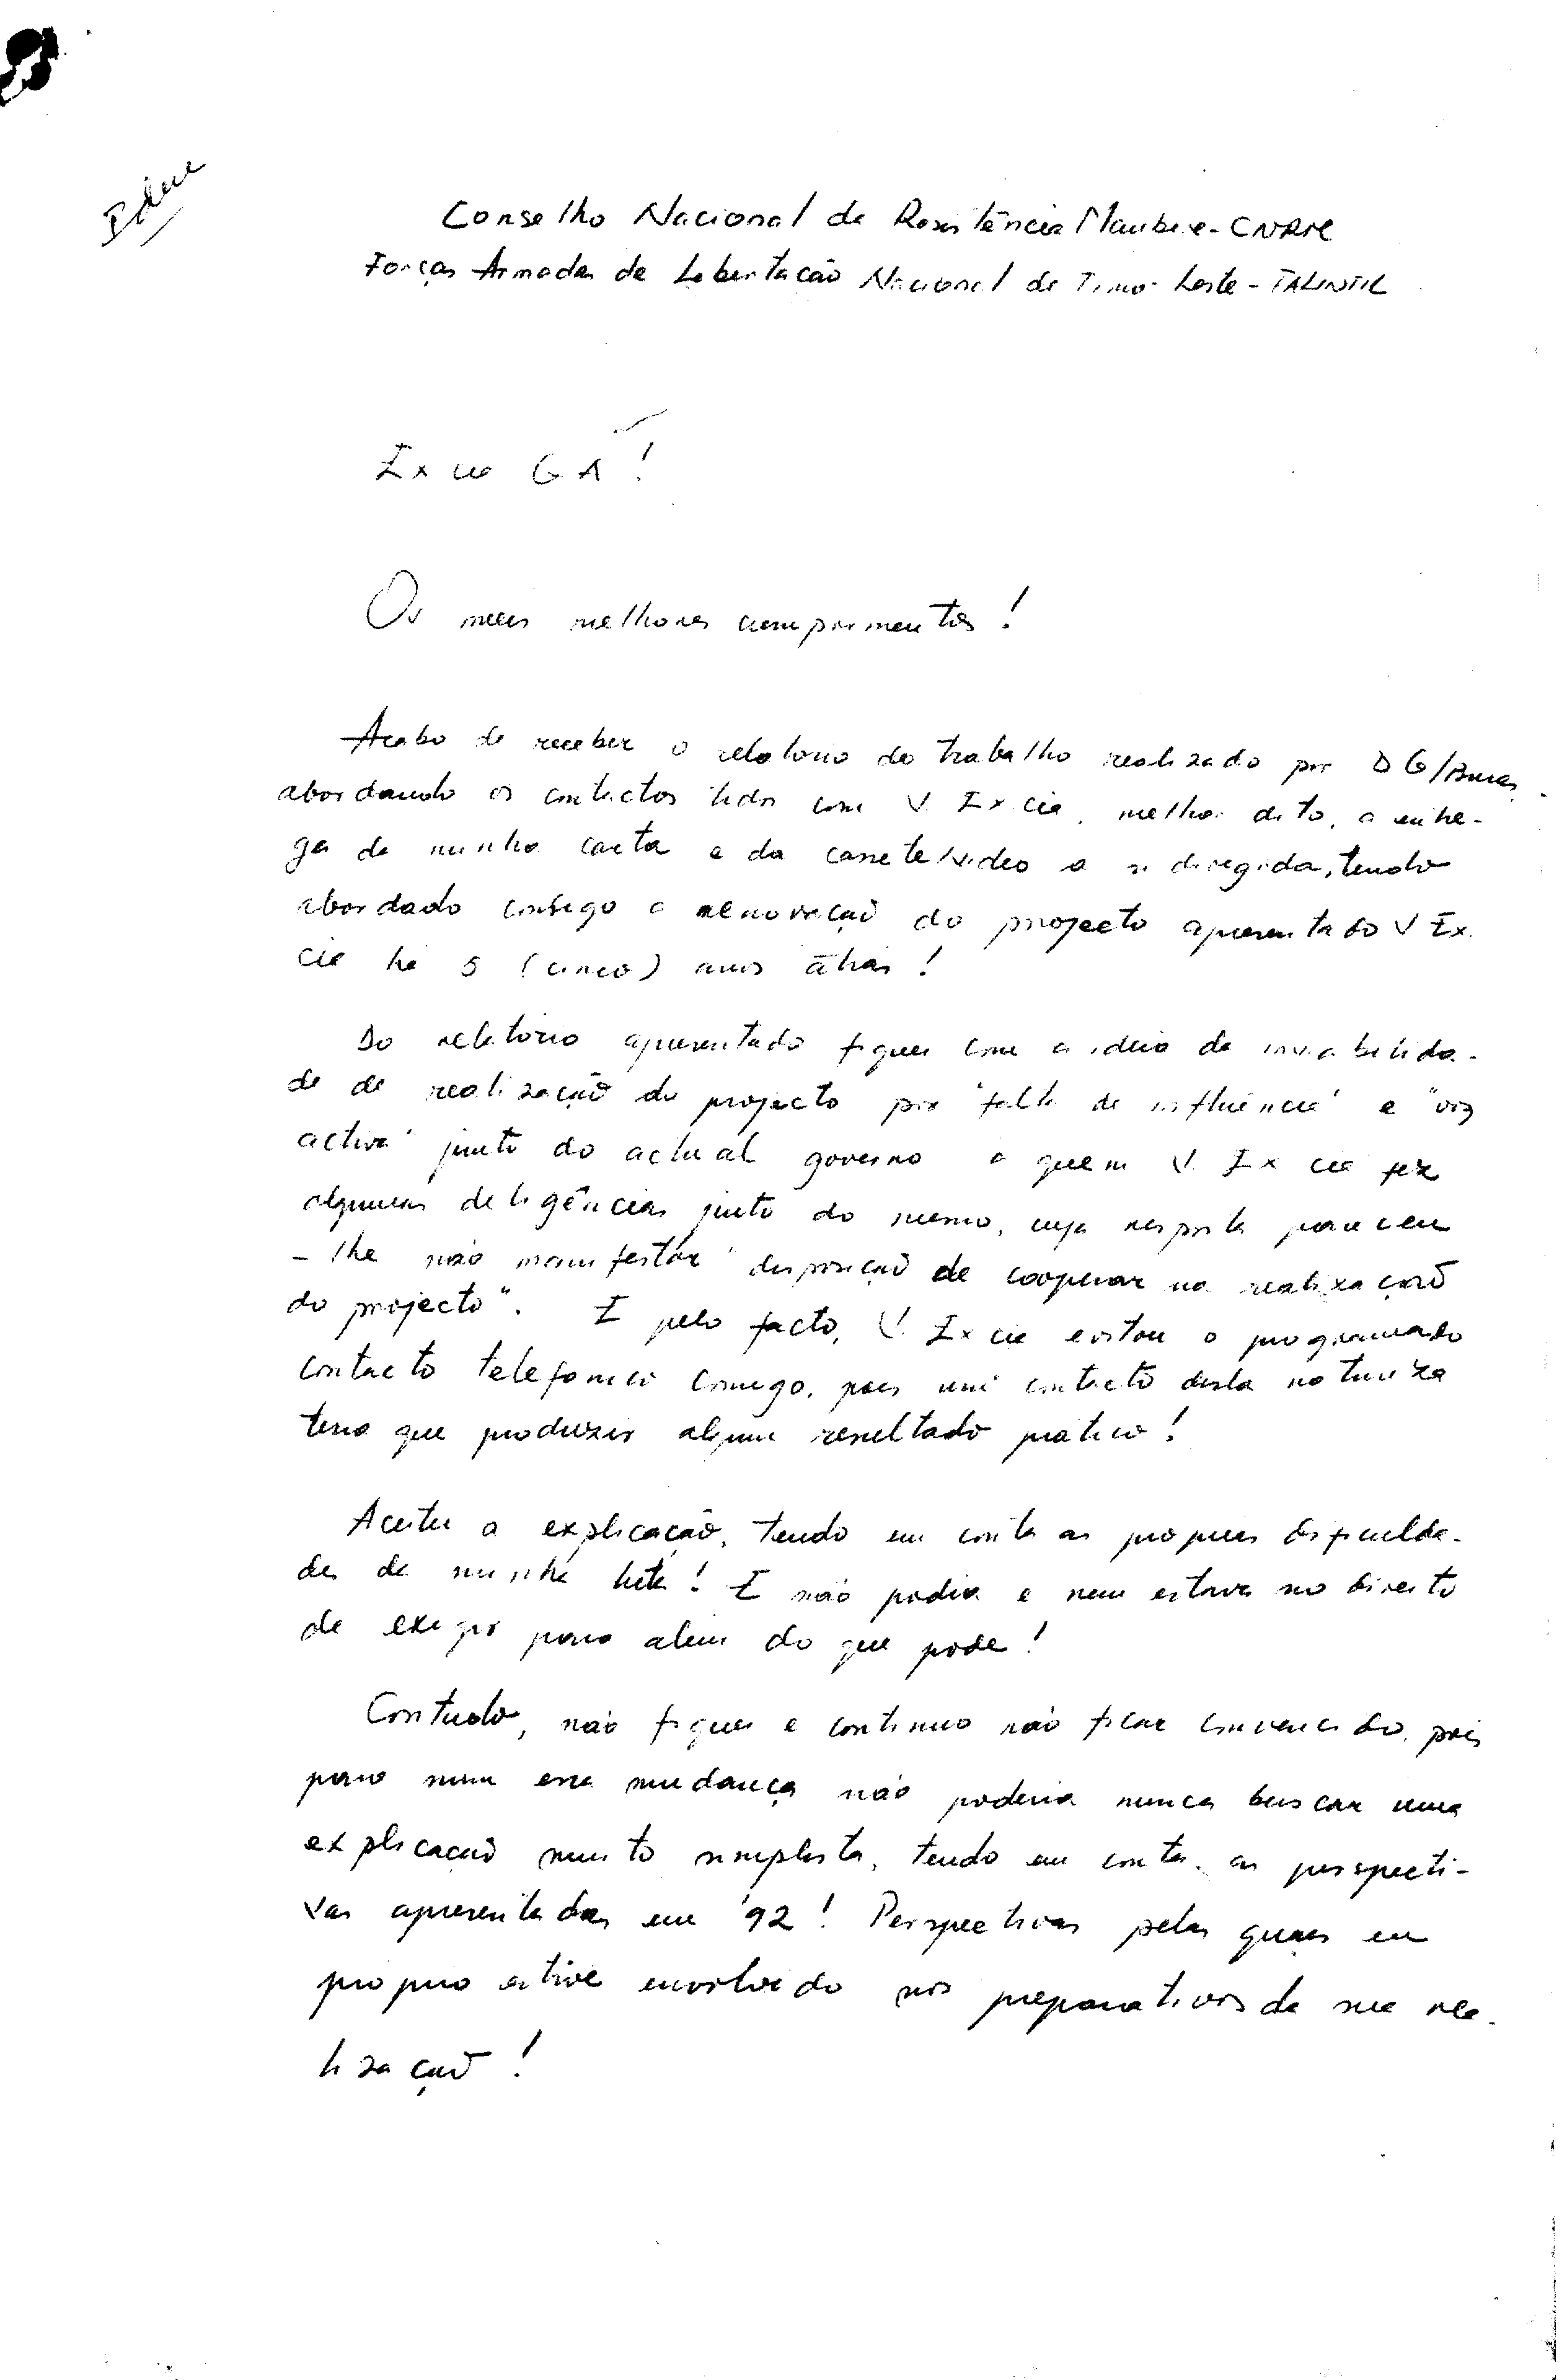 Conselho Nacional da Resistência Maubere - CNRM
Forças Armadas de Libertação Nacional de Timor Leste - FALINTIL
Excia GA!
Os meus melhores cumprimentos!
Acabo de receber o relatorio do trabalho realizado por DG/
abordando os contactos tidos com V. Excia, melhor dito, a entre-
ga da minha carta e da cassete/video a si dirigida, tendo
abordado consigo a renovação do projecto apresentado V Ex.
cia há 5 (cinco) anos atrás!
Do relatorio apresentado fiquei com a ideia da inviabilida-
de de realização do projecto por "falta de influência" e "voz
activa" junto do actual governo a quem V. Excia fez
algumas deligências junto do mesmo, cuja resposta pareceu
-lhe não manifestar "disposição de cooperar na realização
do projecto". E pelo facto, V. Excia evitou o programado
contacto telefonico comigo, pois um contacto desta natureza
teria que produzir algum resultado pratico!
Aceitei a explicação, tendo em conta as proprias dificulda-
des da minha luta! E não podia e nem estava no direito
de exigir para alem do que pode!
Contudo, não fiquei e continuo não ficar convencido, pois
para mim essa mudança não poderia nunca buscar uma
explicação muito simplista, tendo em conta as perspecti-
vas apresentadas em '92! Perspectivas pelas quais eu
proprio estive envolvido nos preparativos da sua rea-
lização!